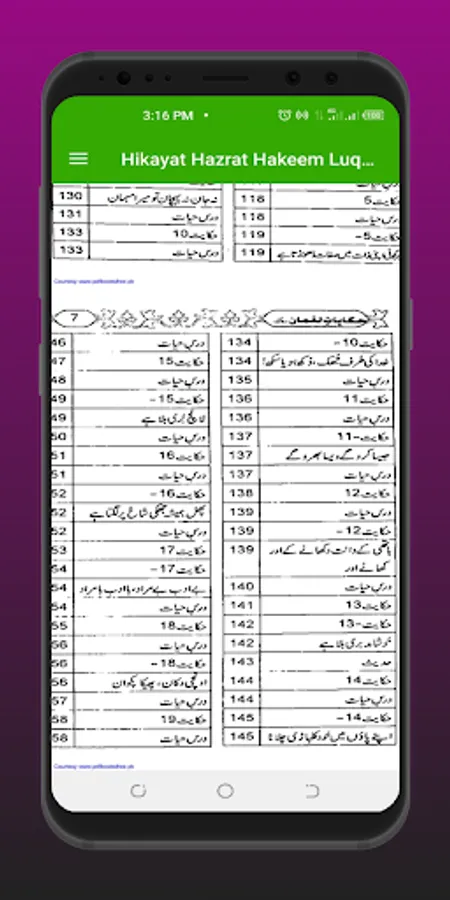 3:16 PM
Hikayat Hazrat Hakeem Luq...
حکایت 5 118
درس حیات 118
حکایت 5- 119
119
نہ جان نہ پہچان تو میرا مہمان 130
درس حیات 131
حکایت 10 133
درس حیات 133
Courtesy www.pdfbooksfree.pk
حکایات لقمان
7
حکایت 10- 134
خدا کی طرف جھک، دکھ ہو یا سکھ! 134
درس حیات 135
حکایت 11 136
درس حیات 136
حکایت 11- 137
جیسا کرو گے ویسا بھرو گے 137
درس حیات 137
حکایت 12 138
درس حیات 139
حکایت 12- 139
ہاتھی کے دانت دکھانے کے اور 139
کھانے اور
درس حیات 140
حکایت 13 141
حکایت 13- 142
خوشامد بری بلا ہے 142
حدیث 143
حکایت 14 144
درس حیات 144
حکایت 14- 145
اپنے پاؤں میں خود کلہاڑی چلانا 145
درس حیات 46
حکایت 15 47
درس حیات 48
حکایت 15- 49
لالچ بری بلا ہے 49
درس حیات 50
حکایت 16 51
درس حیات 51
حکایت 16- 52
پھل ہمیشہ جھکی شاخ پر لگتا ہے 52
درس حیات 52
حکایت 17 53
حکایت 17- 54
بے ادب بے مراد، با ادب با مراد 54
درس حیات 54
حکایت 18 55
درس حیات 56
حکایت 18- 56
اونچی دکان، پھیکا پکوان 56
درس حیات 57
حکایت 19 58
درس حیات 58
Courtesy www.pdfbooksfree.pk